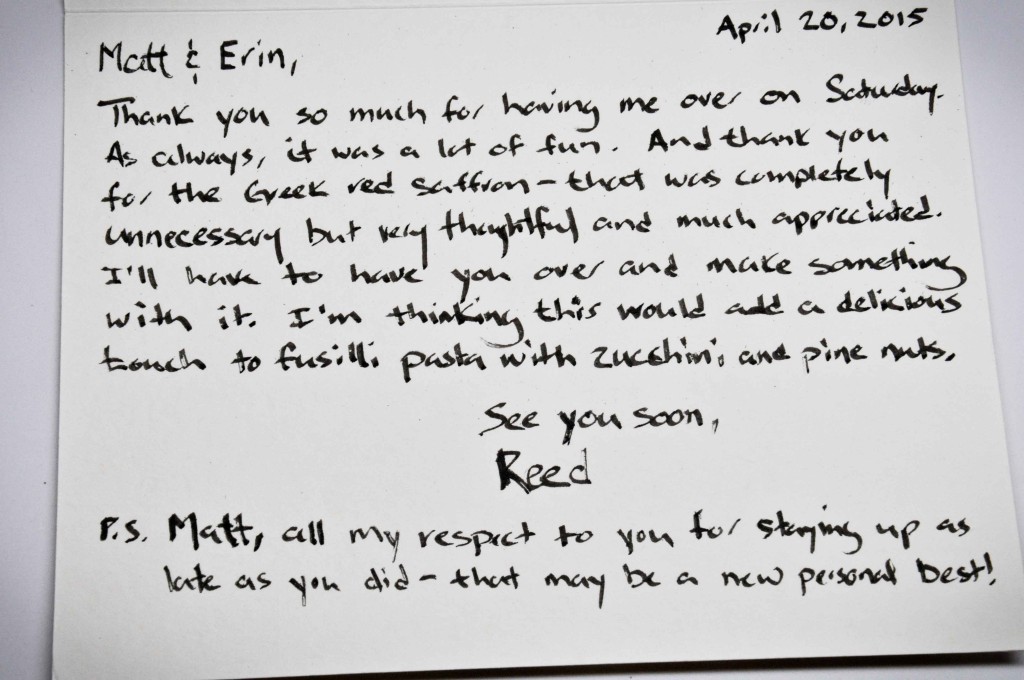 April 20, 2015
Matt & Erin,
Thank you so much for having me over on Saturday.
As always, it was a lot of fun. And thank you
for the Greek red saffron - that was completely
unnecessary but very thoughtful and much appreciated.
I'll have to have you over and make something
with it. I'm thinking this would add a delicious
touch to fusilli pasta with zucchini and pine nuts.
See you soon,
Reed
P.S. Matt, all my respect to you for staying up as
late as you did - that may be a new personal best!